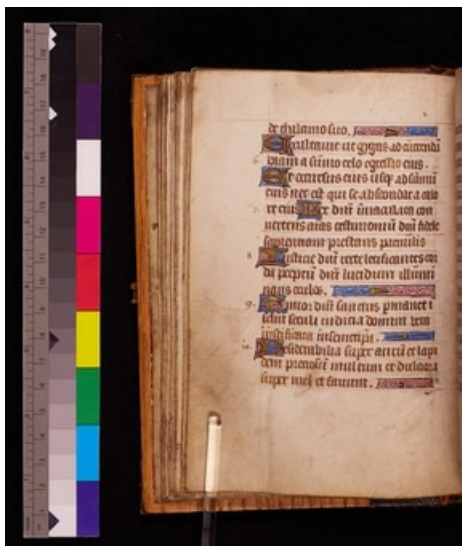 de thalamo suo.
Exultauit ut gygas ad currendã
uiam a sũmo celo egressio eius.
Et occursus eius usq; ad sũmũ
eius nec est qui se abscondat a calo
re eius Lex dñi ĩmaculata con
uertens aĩas testimoniũ dñi fidele
sapientiam prestans paruulis
Iusticie dñi recte letificantes cor
da preceptũ dñi lucidum illumi
nans oculos.
Timor dñi sanctus pmanet ĩ
sclm seculi iudicia domini uera
iustificata in semetipa.
Desiderabilia super aurũ et lapi
dem preciosũ multum et dulciora
super mel et fauum.